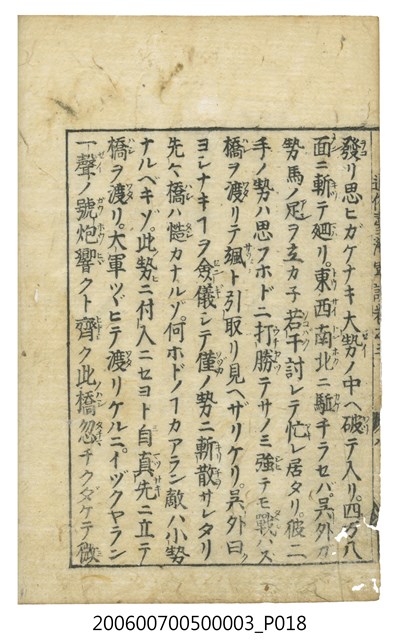 發リ思ヒガケナキ大勢ノ中ヘ破テ入リ。四方八
面ニ斬テ廻リ。東西南北ニ駈チラセバ。呉外ガ
勢馬ノ足ヲ立カ子若干討レテ忙レ居タリ。彼ニ
手ノ勢ハ思フホドニ打勝テサノミ強テモ戰ハズ
橋ヲ渡リテ颯ト引取リ見ヘザリケリ。呉外曰
ヨシナキヿヲ僉儀シテ僅ノ勢ニ斬散サレタリ
先ヶ橋ハ慥カナルゾ。何ホドノヿカアラン敵ハ小勢
ナルベキゾ。此勢ニ付入ニセヨト自真先ニ立テ
橋ヲ渡リ。大軍ツヾヒテ渡リケルニ。イヅクヤラン
一聲ノ號炮響クト齊ク此橋忽チクダケテ微
200600700500003_P018